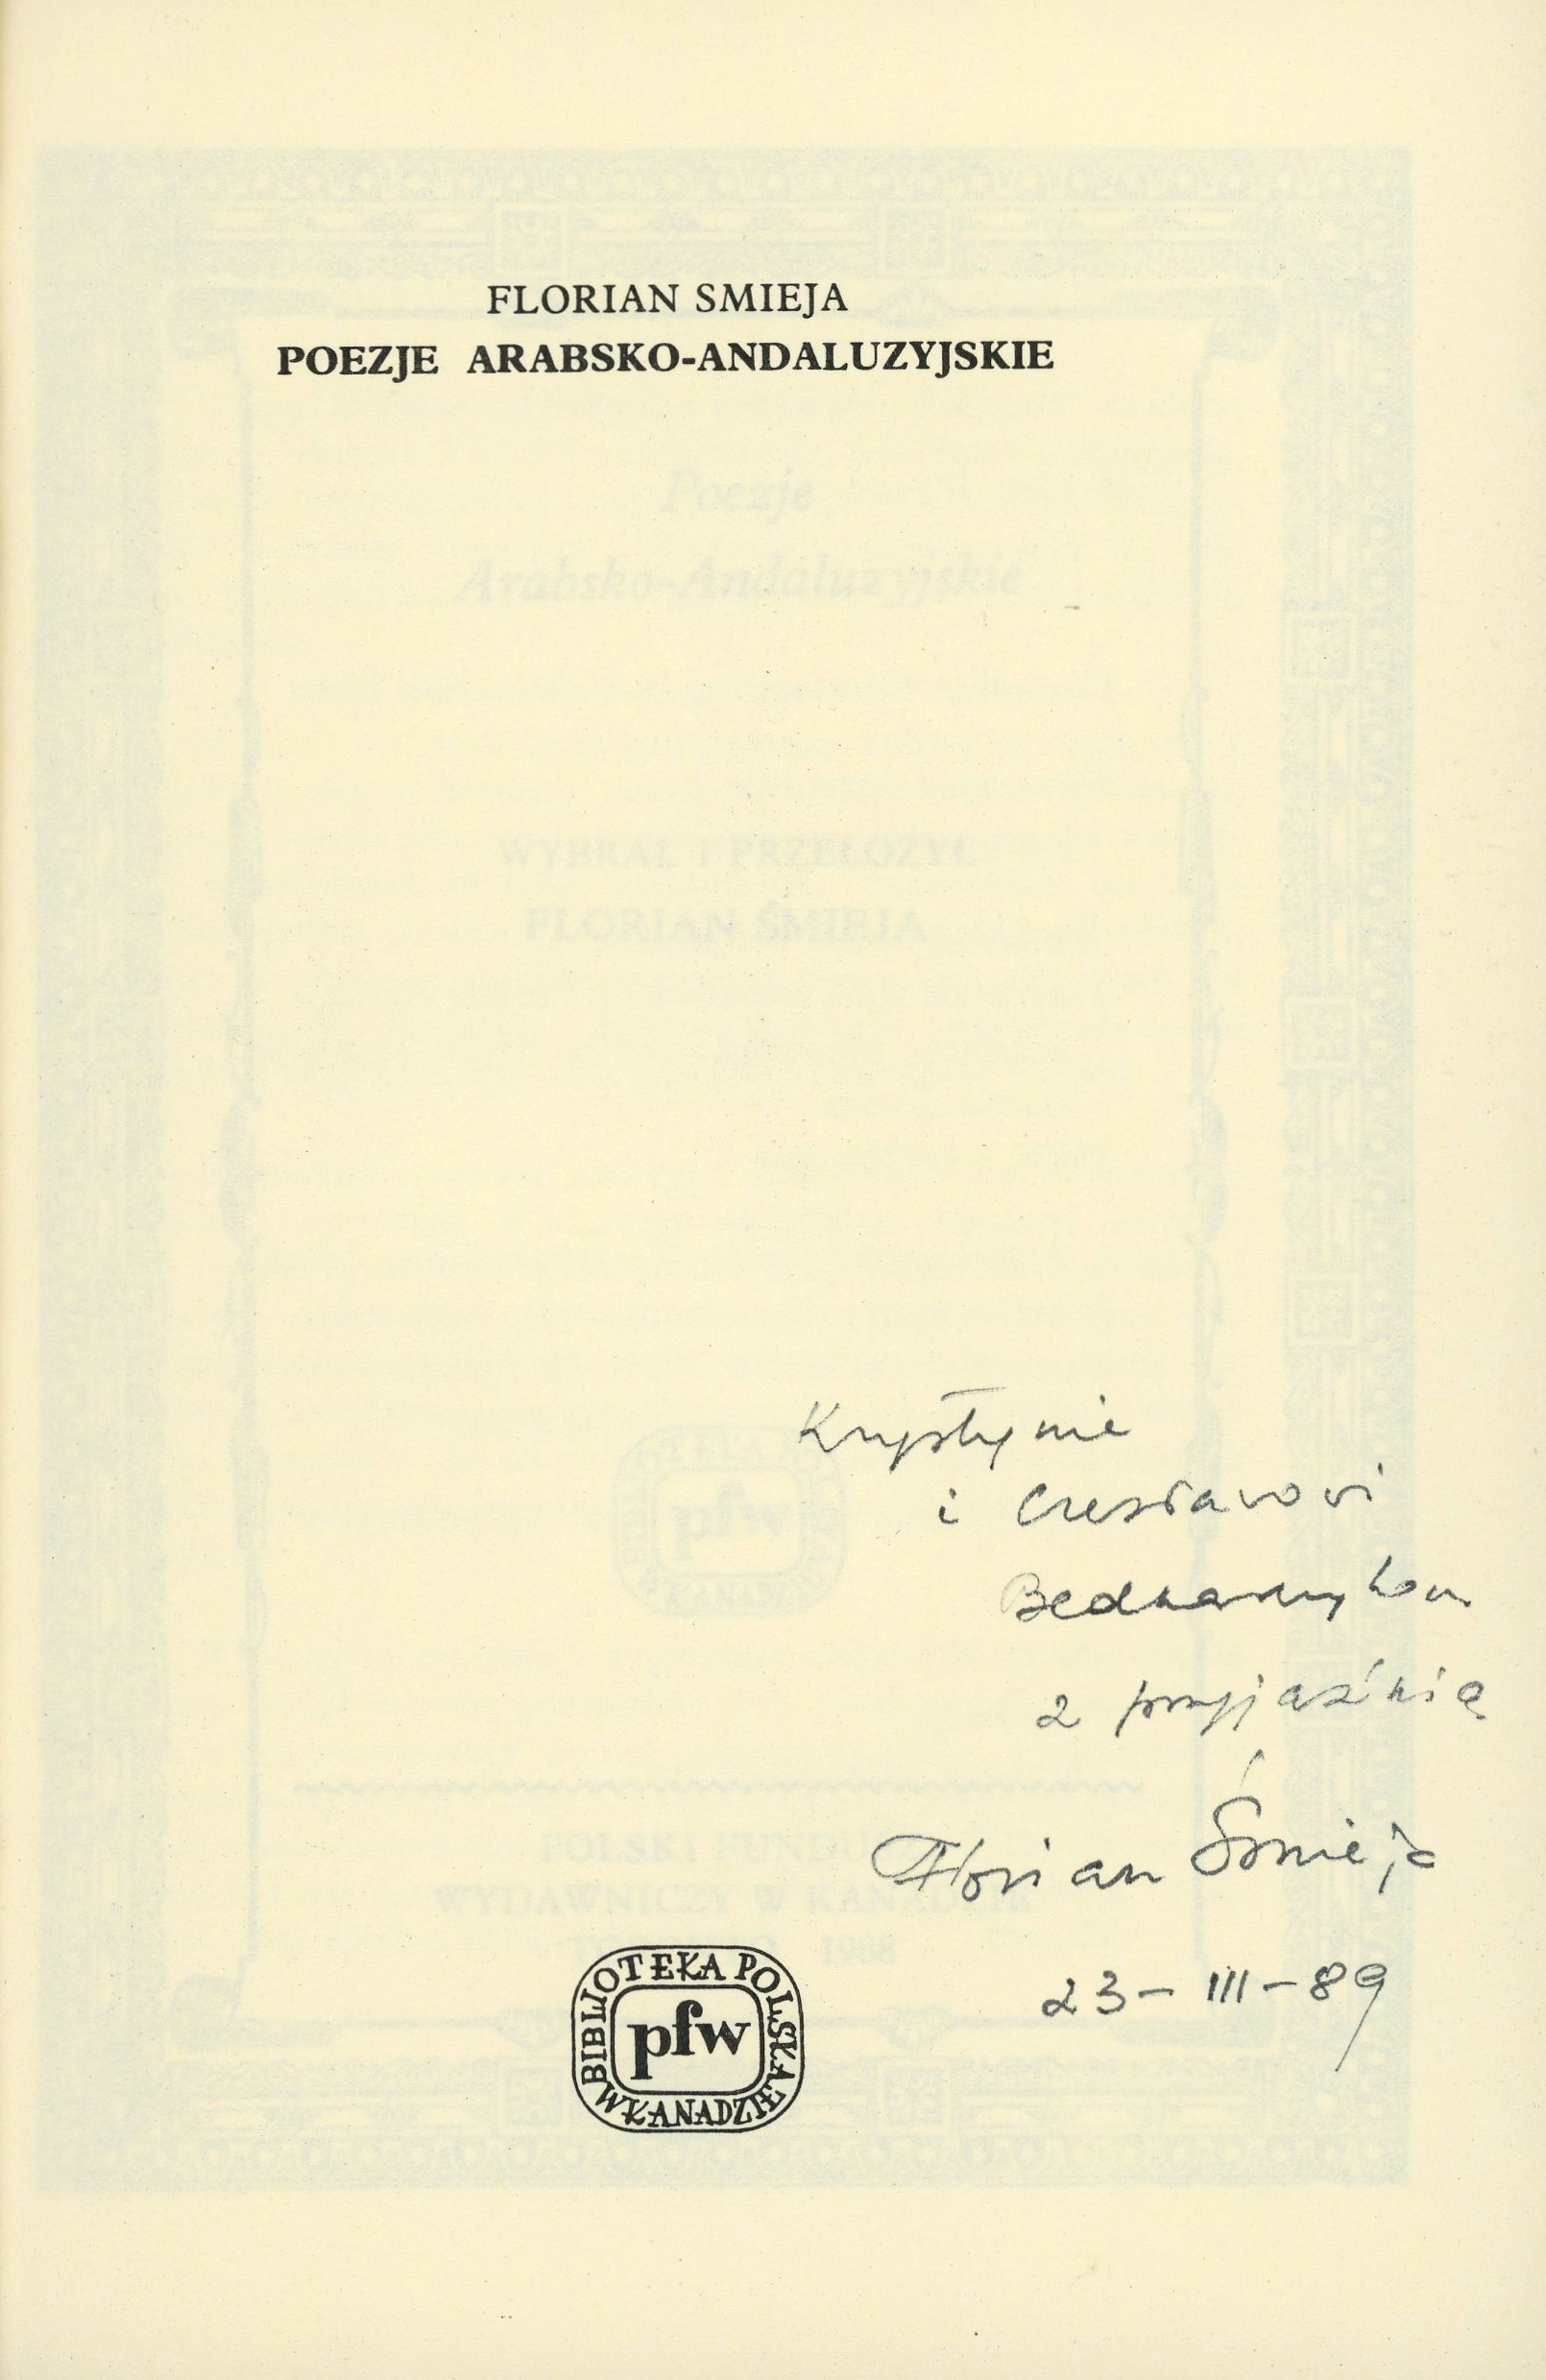 FLORIAN SMIEJA
POEZJE ARABSKO-ANDALUZYJSKIE
Poezje
Arabsko-Andaluzyjskie
WYBRAŁ I PRZEŁOŻYŁ
FLORIAN ŚMIEJA
Krystynie
i Czesławowi
Bednarczykom
z przyjaźnią
Florian Śmieja
23-III-89
POLSKI FUNDUSZ
WYDAWNICZY W KANADZIE
1988
BIBLIOTEKA POLSKA
pfw
W KANADZIE